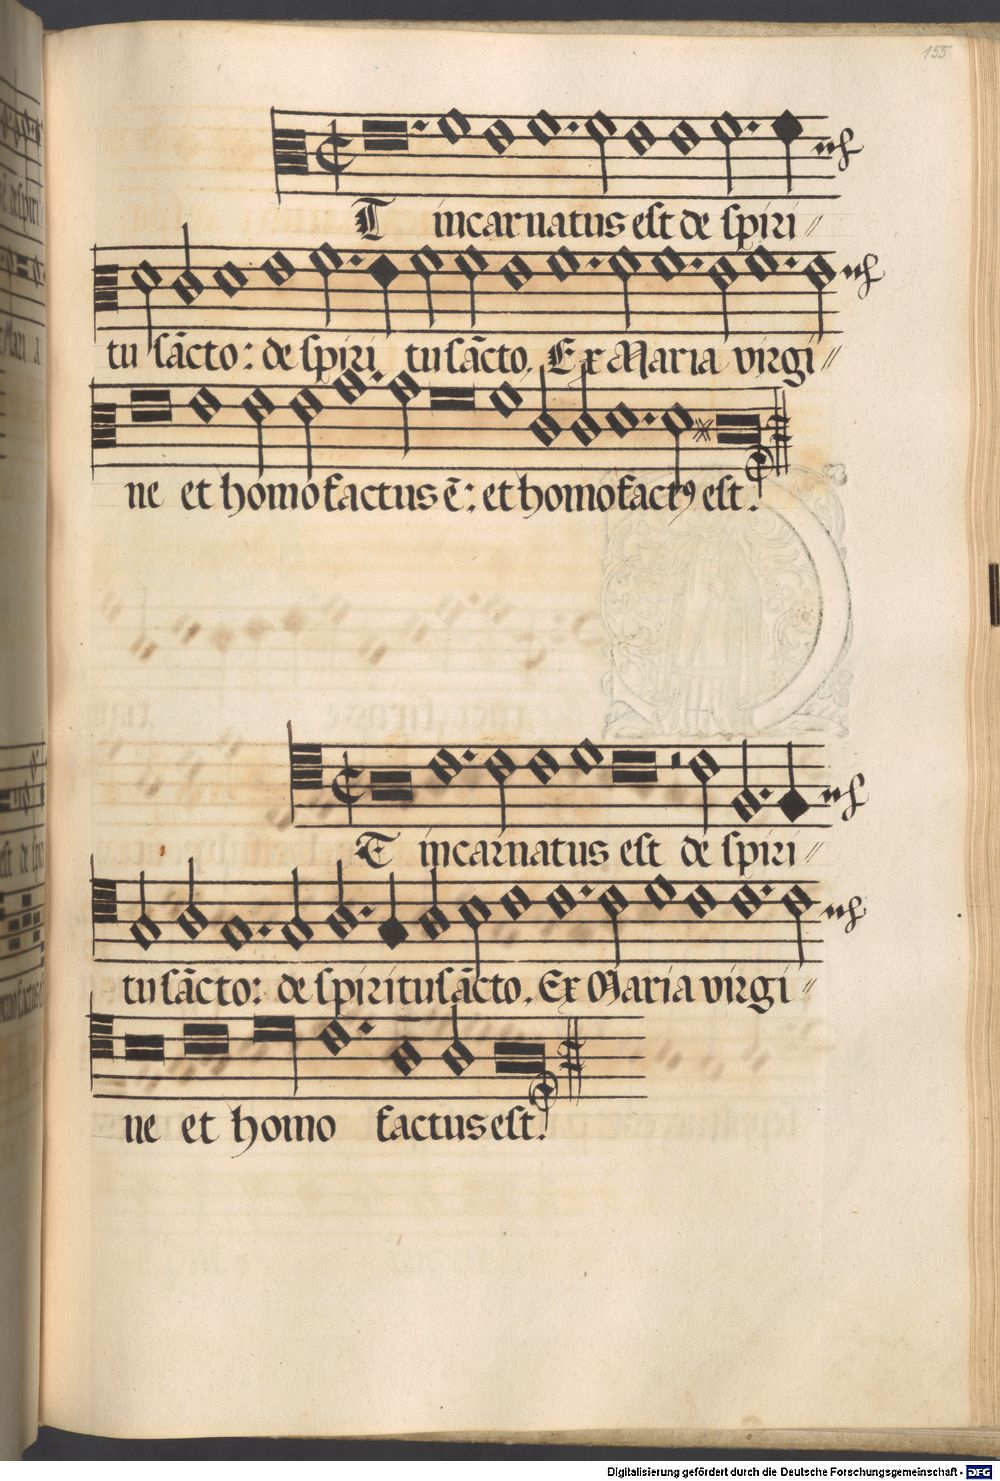 155
Et incarnatus est de spiri//
tu sācto: de spiri tu sācto. Ex Maria virgi//
ne et homo factus ē: et homo factꝰ est.
Et incarnatus est de spiri//
tu sācto: de spiritu sācto. Ex Maria virgi//
ne et homo factus est.
Digitalisierung gefördert durch die Deutsche Forschungsgemeinschaft - DFG